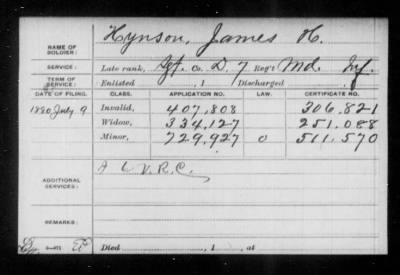 Hynson, James H.
NAME OF SOLDIER:
SERVICE: Late rank, Sgt. Co. D, 7 Reg't Md. Inf.
TERM OF SERVICE: Enlisted , 1 Discharged , 1
DATE OF FILING. CLASS. APPLICATION NO. LAW. CERTIFICATE NO.
1880 July 9 Invalid, 407,808 306,821
Widow, 334,127 251,088
Minor, 729,927 0 511,570
ADDITIONAL SERVICES: V.R.C.
REMARKS:
Died , 1 , at